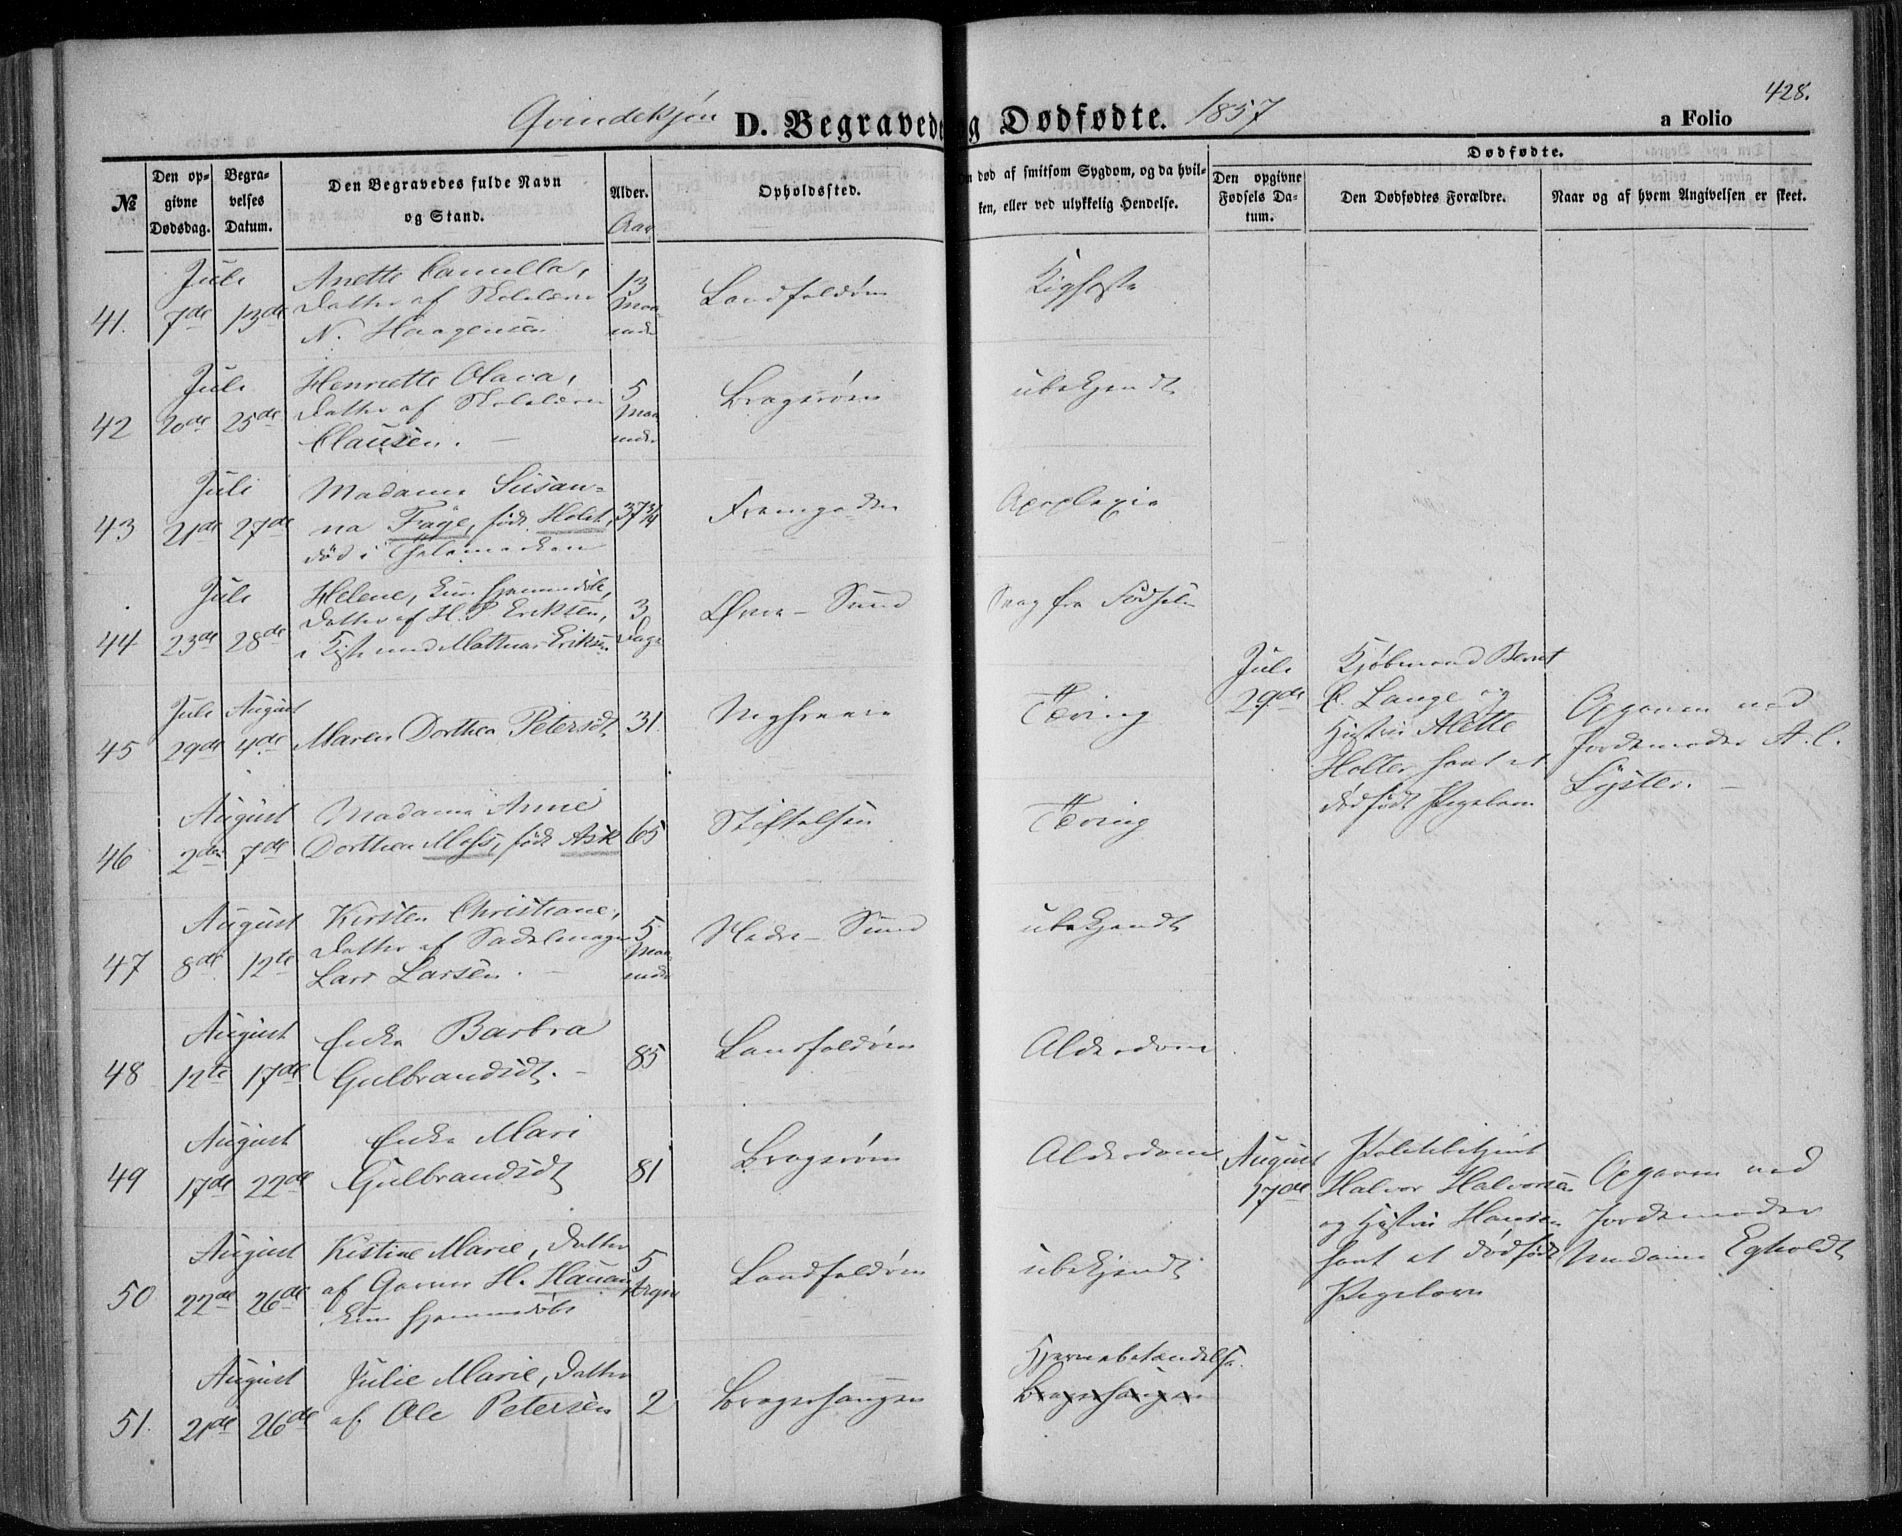 Qvindekjøn D. Begravede og Dødfødte. 1857 a Folio 428.
№
Den opgivne Dødsdag.
Begravelses Datum.
Den Begravedes fulde Navn og Stand.
Alder.
Aar
Opholdssted.
død af smitsom Sygdom, og da hvilken, eller ved ulykkelig Hendelse.
Dødfødte.
Den opgivne Fødsels Datum.
Den Dødfødtes Forældre.
Naar og af hvem Angivelsen er skeet.
41. Juli 7de 13de
Anette Camilla,
Datter af Skolelærer
N. Haagensen
13 Maaneder
Landfaldøen
Kighoste
42 Juli 20de 25de
Henriette Olava,
Datter af Skolelærer
Clausen. –
5 Maaneder
Bragerøen
ubekjendt
43 Juli 21de 27de
Madame Susan-
na Fåye, født Holst,
død i Thelemarken
37 3/4
Fremgaden
Apoplexie
44 Juli 23de 28de
Helene, kun hjemmedøbt,
Datter af H. P. Eriksen,
i Kiste med Mathias Eriksen
3 Dage
Øvre-Sund
Svag fra Fødselen
45 Juli 29de August 4de
Maren Dorthea Petersdt
31.
Nyhavn
Tæring
Juli 29de
Kjøbmand Bernt
C. Lange og
Hustru Alette
Holter havt et
dødfødt Pigebarn
Opgaven ved
Jordemoder A. C.
Lyster. –
46 August 2den 7de
Madame Anne
Dorthea Moss, født Ask
65
Stiftelsen
Tæring
47 August 8de 12te
Kirsten Christiane,
Datter af Sadelmager
Lars Larsen. –
5 Maaneder
Nedre-Sund
ubekjendt
48 August 12te 17de
Enke Barbra
Gulbrandsdt. –
85
Landfaldøen
Alderdom
49 August 17de 22de
Enke Mari
Gulbrandsdt
81
Bragerøen
Alderdom
August 17de
Politibetjent
Halvor Halvorsen
og Hustru Hansen
havt et dødfødt
Pigebarn
Opgaven ved
Jordemoder
Madame Egholdt
50 August 22de 26de
Kistine Marie, Datter
af Garver H. Hauan
kun hjemmedøbt
5 Uger
Landfaldøen
ubekjendt
51. August 21de 26de
Julie Marie, Datter
af Ole Petersen
2
Bragerhaugen
Hjernebetændelse.
Bragerhaugen